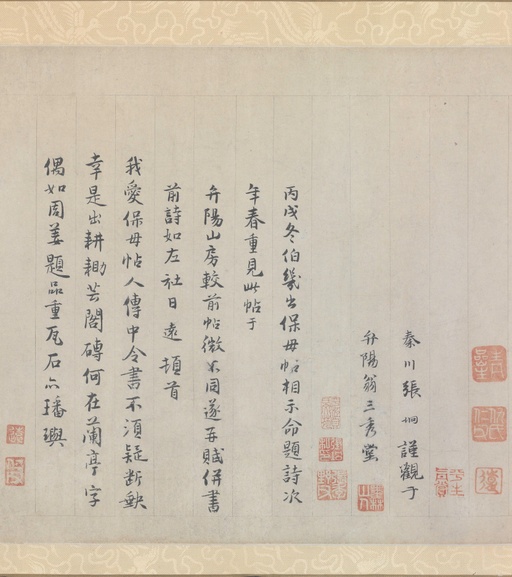 秦川張坰謹觀于
弁陽翁三秀堂
丙戌冬伯幾出保母帖相示命題詩次
年春重見此帖于
弁陽山房較前帖微不同遂再賦併書
前詩如左社日遠頓首
我愛保母帖人傳中令書不須疑斷缺
幸是出耕耡芸閣磚何在蘭亭字
偶如周姜題品重瓦石亦璠璵